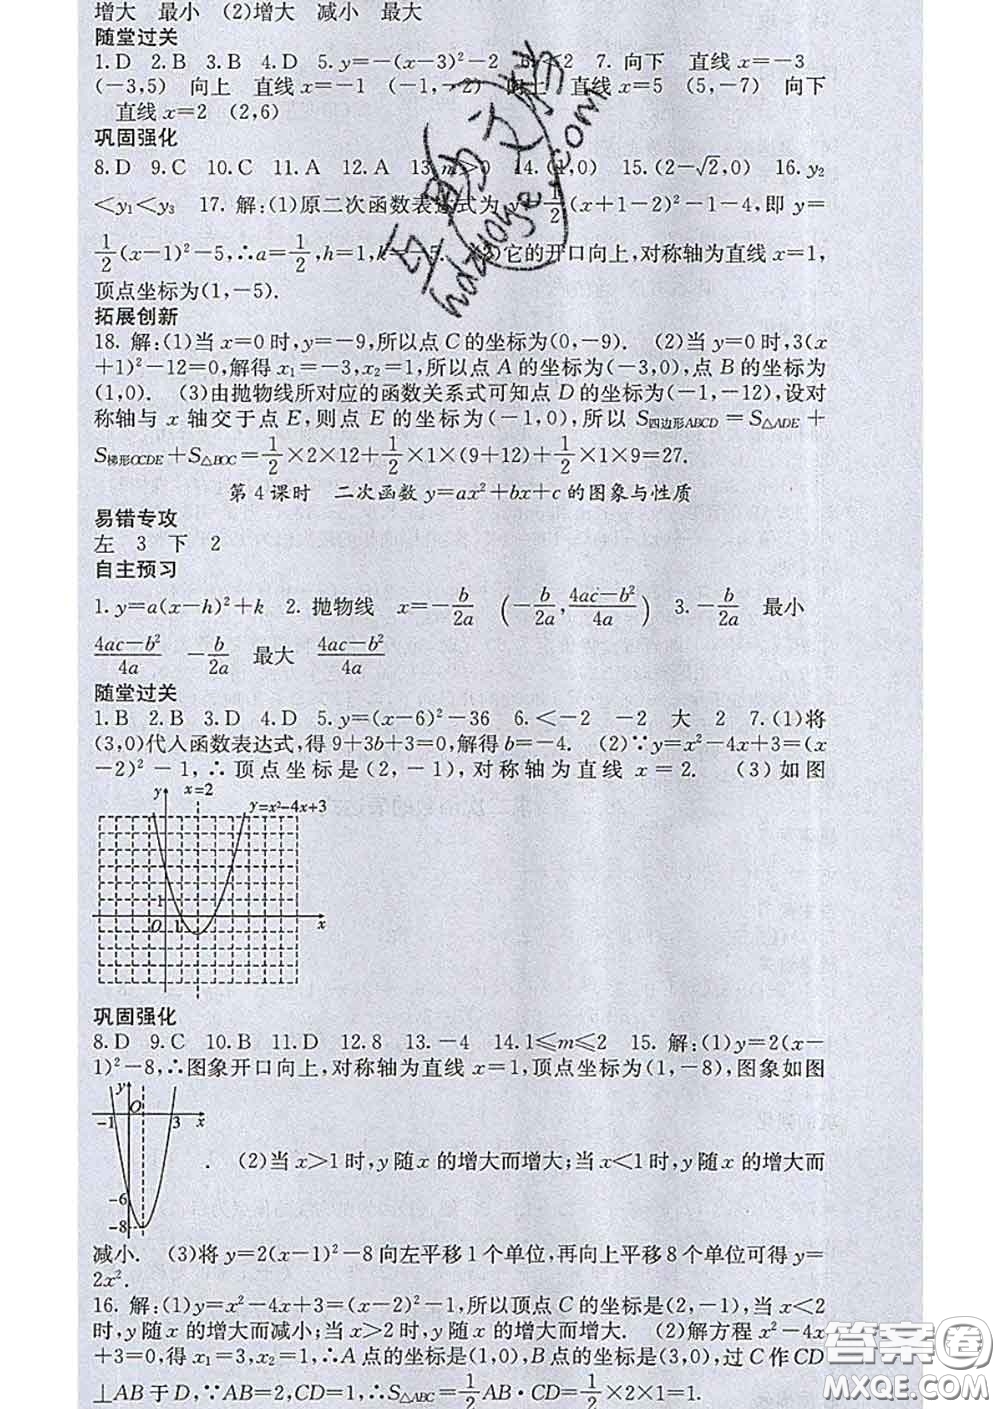 增大　最小　(2)增大　减小　最大
随堂过关
1. D　2. B　3. B　4. D　5. y=-(x-3)²-2　6. <2　7. 向下　直线 x=-3
(-3,5)　向上　直线 x=-1　(-1,-2)　向上　直线 x=5　(5,-7)　向下
直线 x=2　(2,6)
巩固强化
8. D　9. C　10. C　11. A　12. A　13. m>0　14. (1,0)　15. (2-√2,0)　16. y₂
<y₁<y₃　17. 解:(1)原二次函数表达式为 y=1/2(x+1-2)²-1-4,即 y=
1/2(x-1)²-5,∴a=1/2,h=1,k=-5.　(2)它的开口向上,对称轴为直线 x=1,
顶点坐标为(1,-5).
拓展创新
18. 解:(1)当 x=0 时,y=-9,所以点 C 的坐标为(0,-9).　(2)当 y=0 时,3(x
+1)²-12=0,解得 x₁=-3,x₂=1,所以点 A 的坐标为(-3,0),点 B 的坐标为
(1,0).　(3)由抛物线所对应的函数关系式可知点 D 的坐标为(-1,-12),设对
称轴与 x 轴交于点 E,则点 E 的坐标为(-1,0),所以 S四边形ABCD=S△ADE+
S梯形OCDE+S△BOC=1/2×2×12+1/2×1×(9+12)+1/2×1×9=27.
第 4 课时　二次函数 y=ax²+bx+c 的图象与性质
易错专攻
左　3　下　2
自主预习
1. y=a(x-h)²+k　2. 抛物线　x=-b/2a　(-b/2a,(4ac-b²)/4a)　3. -b/2a　最小
(4ac-b²)/4a　-b/2a　最大　(4ac-b²)/4a
随堂过关
1. B　2. B　3. D　4. D　5. y=(x-6)²-36　6. <-2　-2　大　2　7. (1)将
(3,0)代人函数表达式,得 9+3b+3=0,解得 b=-4.　(2)∵y=x²-4x+3=(x
-2)²-1,∴顶点坐标是(2,-1),对称轴为直线 x=2.　(3)如图
y　x=2　y=x²-4x+3
1
O　1　x
巩固强化
8. D　9. C　10. B　11. D　12. 8　13. -4　14. 1≤m≤2　15. 解:(1)y=2(x-
1)²-8,∴图象开口向上,对称轴为直线 x=1,顶点坐标为(1,-8),图象如图
y
O
-1　3　x
.　(2)当 x>1 时,y 随 x 的增大而增大;当 x<1 时,y 随 x 的增大而
-6
-8
减小.　(3)将 y=2(x-1)²-8 向左平移 1 个单位,再向上平移 8 个单位可得 y=
2x².
16. 解:(1)y=x²-4x+3=(x-2)²-1,所以顶点 C 的坐标是(2,-1),当 x<2
时,y 随 x 的增大而减小;当 x>2 时,y 随 x 的增大而增大.　(2)解方程 x²-4x
+3=0,得 x₁=3,x₂=1,∴A 点的坐标是(1,0),B 点的坐标是(3,0),过 C 作 CD
⊥AB 于 D,∵AB=2,CD=1,∴S△ABC=1/2AB·CD=1/2×2×1=1.
答案圈
MXQE.COM